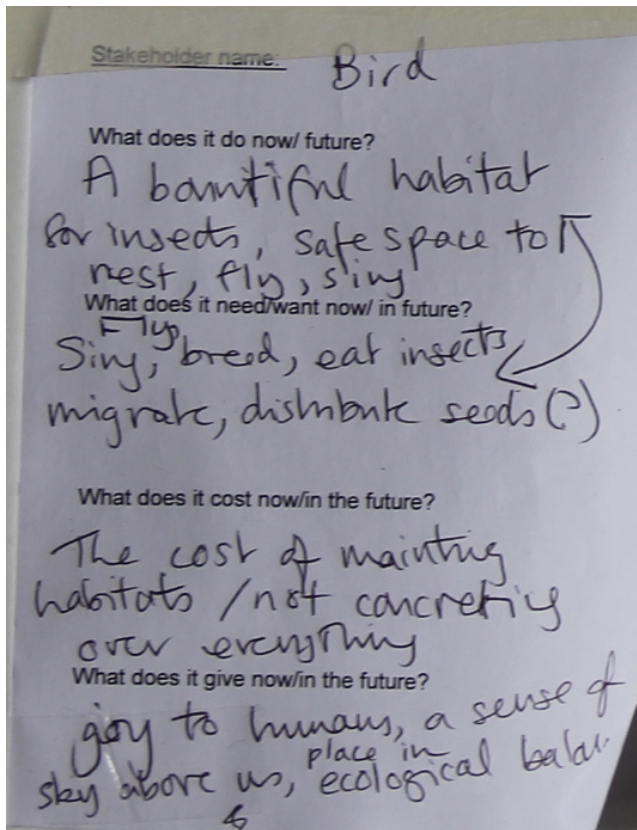 Stakeholder name: Bird
What does it do now/ future?
A bountiful habitat
for insects, safe space to
nest, fly, sing
What does it need/want now/ in future?
Fly,
Sing, breed, eat insects
migrate, distribute seeds (?)
What does it cost now/in the future?
The cost of mainting
habitats / not concreting
over everything
What does it give now/in the future?
joy to humans, a sense of
place in
sky above us, ecological balan